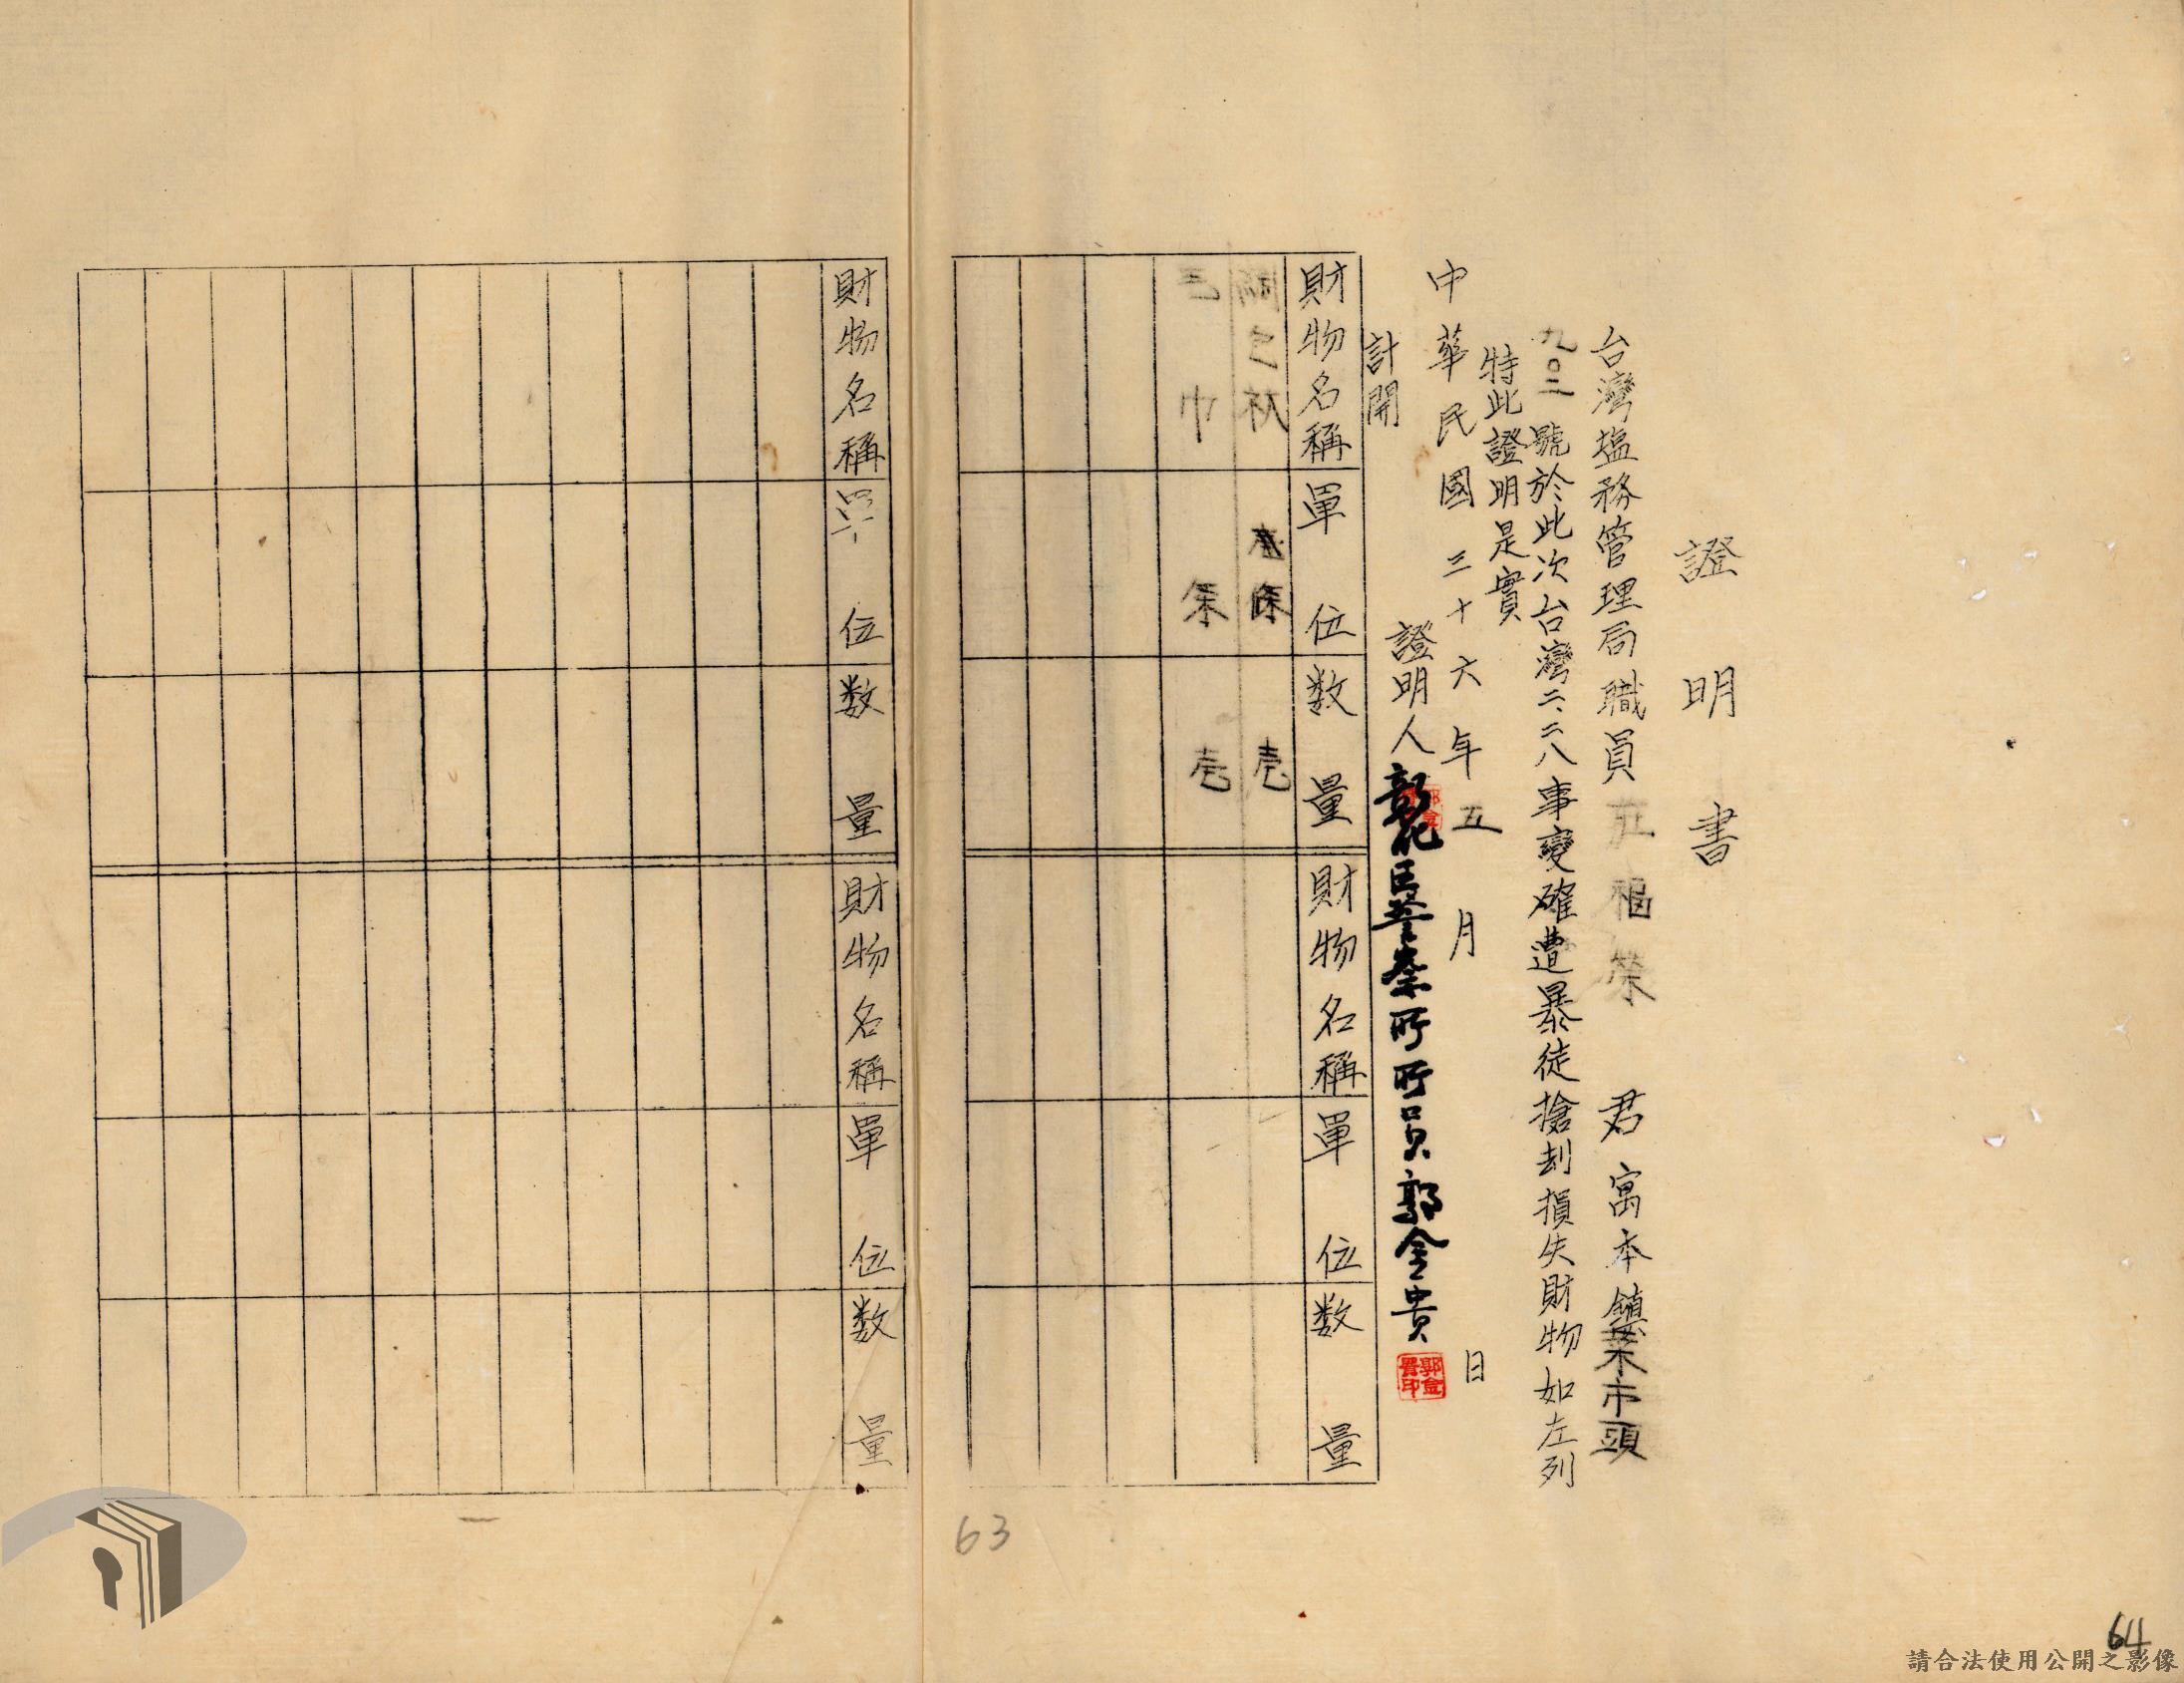 證明書
台灣塩務管理局職員莊福榮 君寓本鎮菜市頭
九〇二號於此次台灣二、二八事變確遭暴徒搶刦損失財物如左列
特此證明是實
中華民國三十六年五月 日
證明人 彰化區警察所所員郭金貴
郭金貴印
計開
財物名稱 單位 数量 財物名稱 單位 数量
条 壱
巾 条 壱
財物名稱 單位 数量 財物名稱 單位 数量
63
64
請合法使用公開之影像